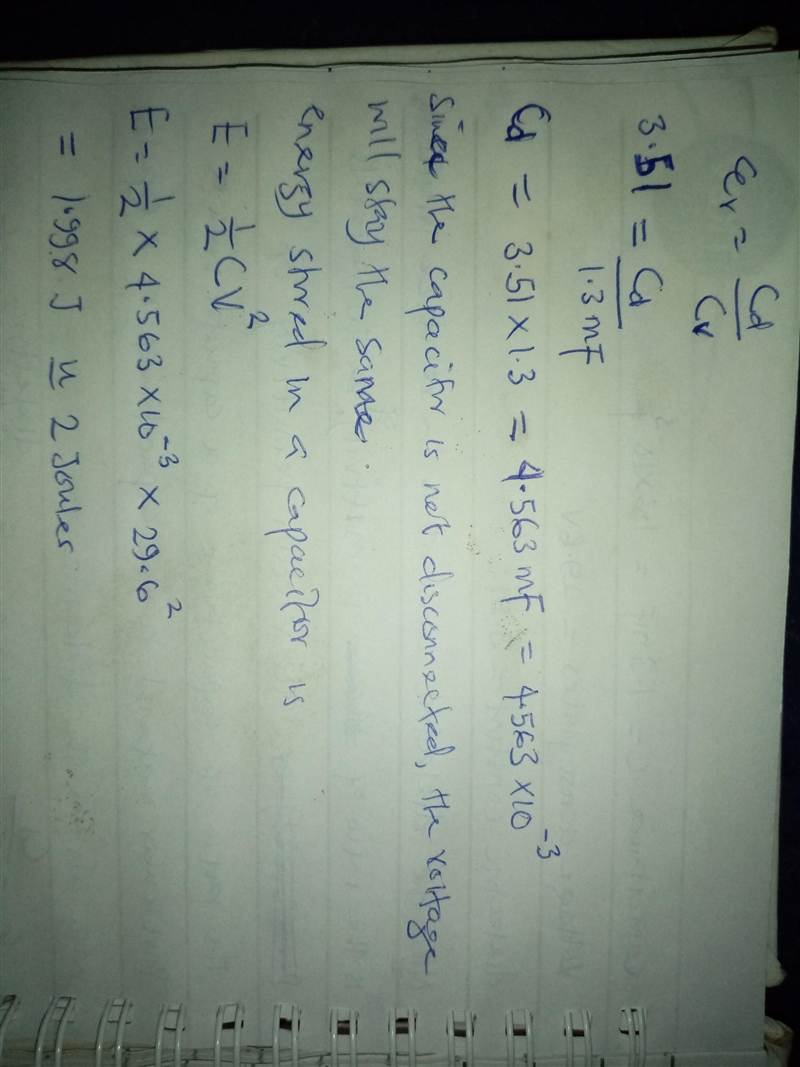 εr = Cd / Cv
3.51 = Cd / 1.3 mF
Cd = 3.51 × 1.3 = 4.563 mF = 4.563 × 10⁻³
Since the capacitor is not disconnected, the voltage
will stay the same.
energy stored in a capacitor is
E = ½ CV²
E = ½ × 4.563 × 10⁻³ × 29.6²
= 1.998 J ≃ 2 Joules